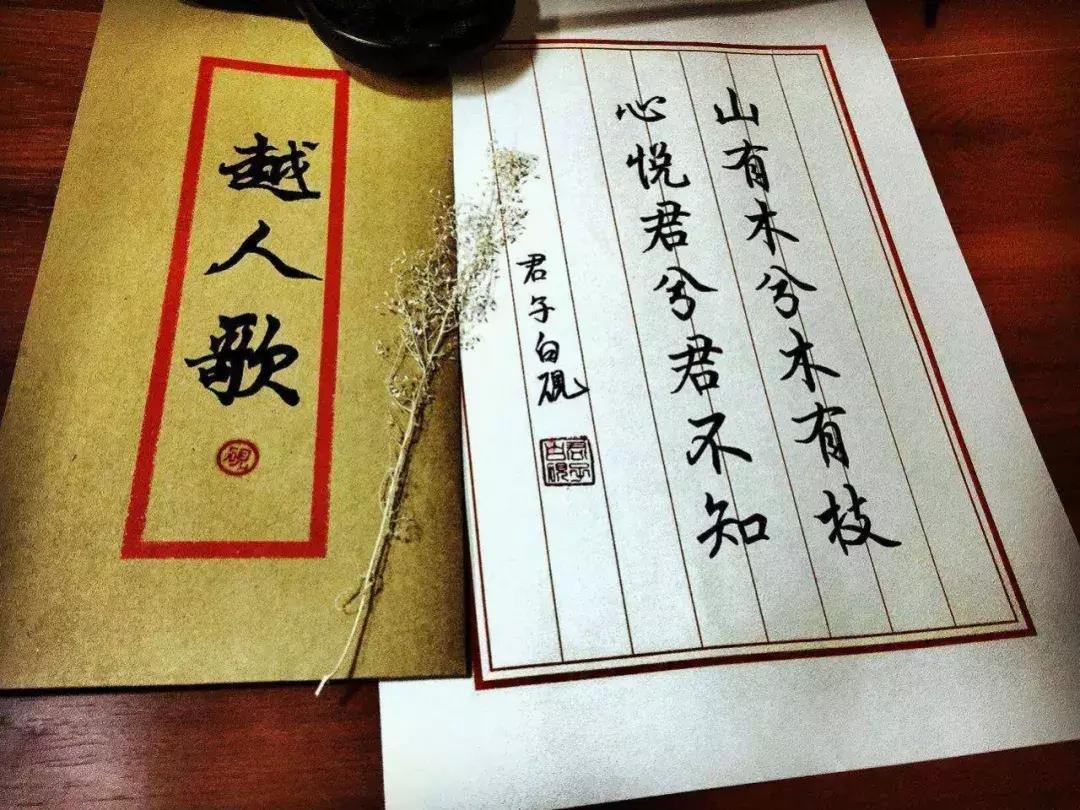 越人歌
砚
山有木兮木有枝
心悦君兮君不知
君子白砚